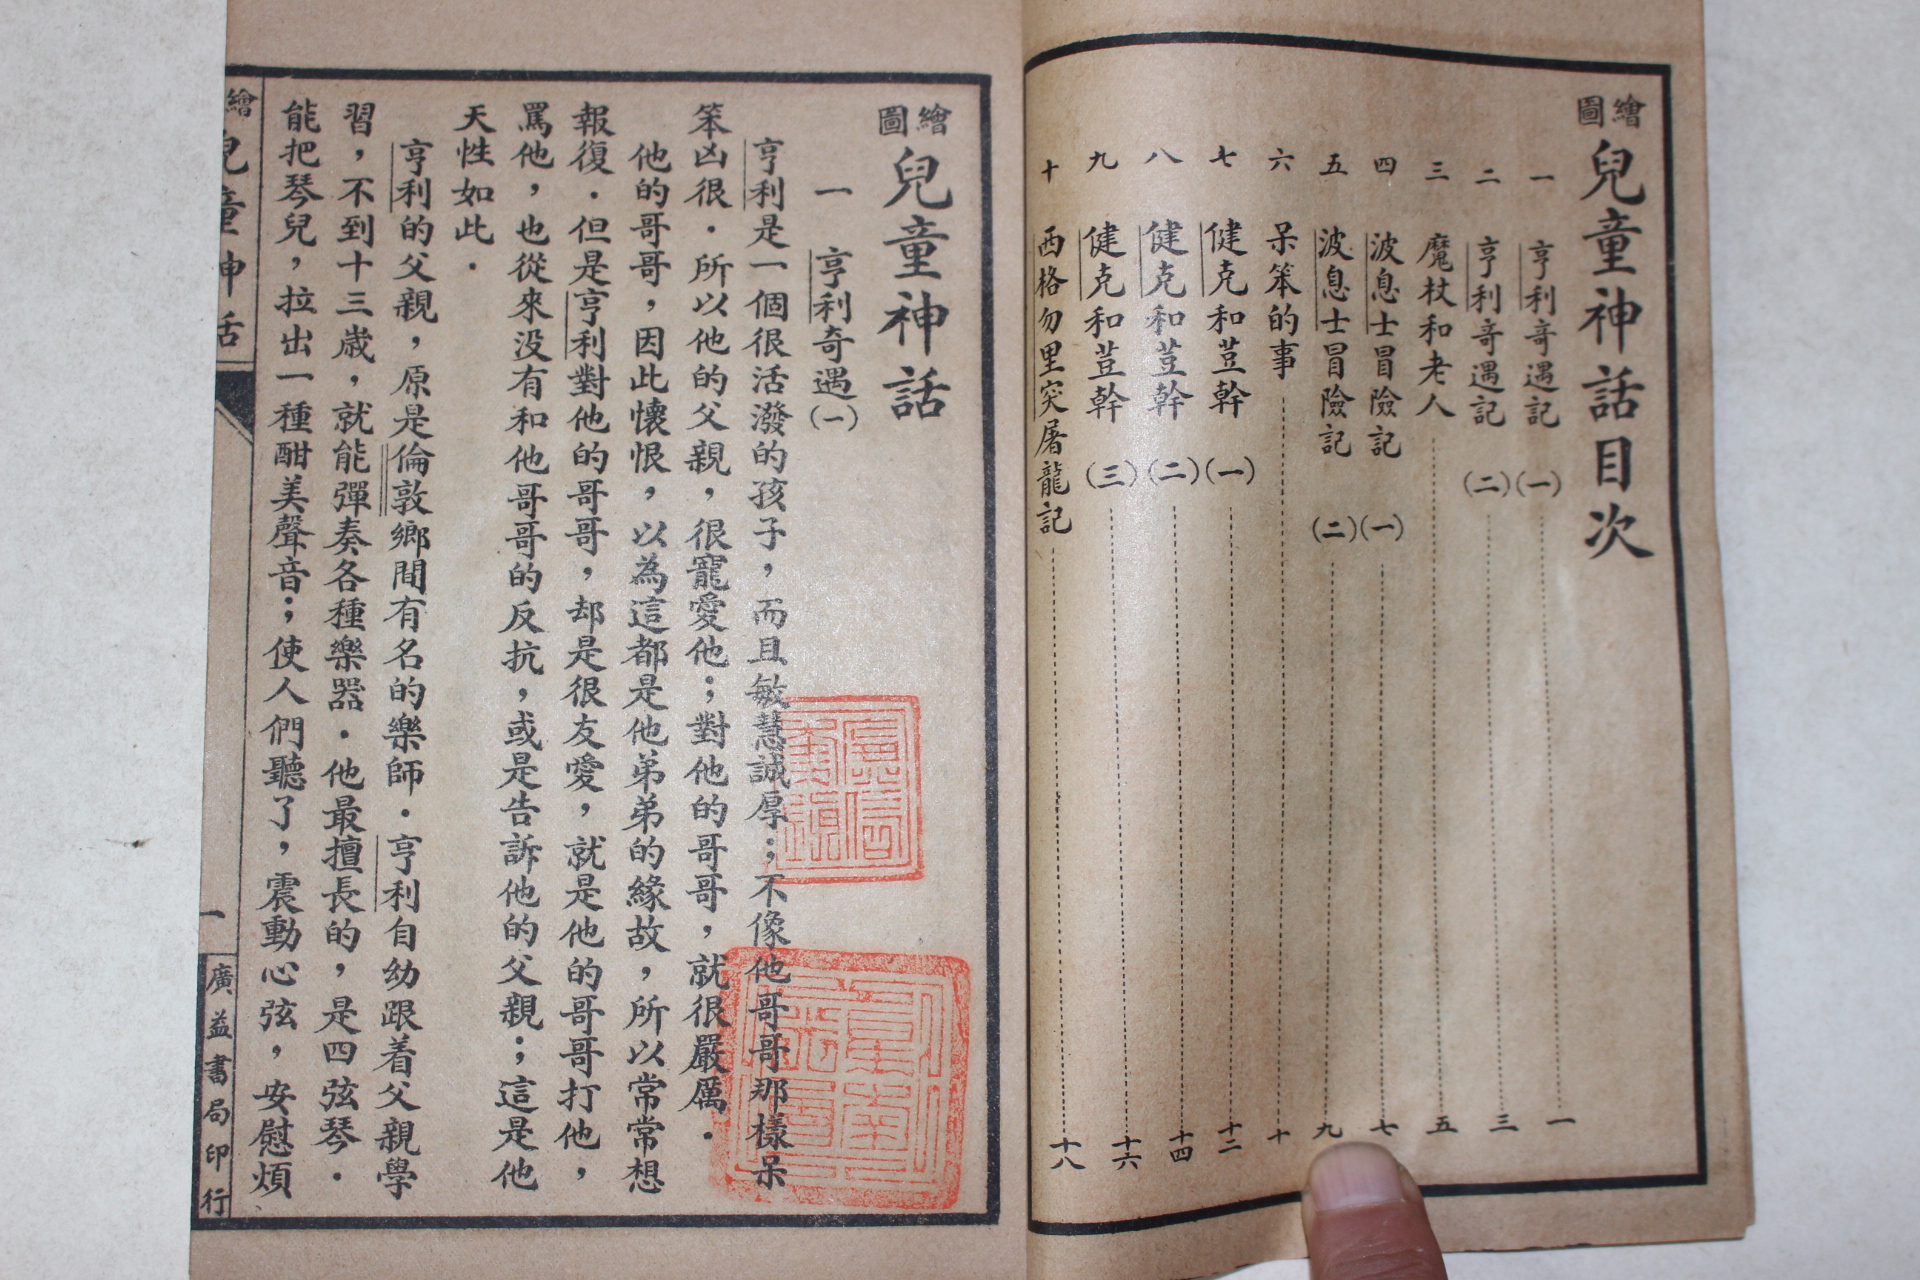 繪圖兒童神話目次
一 亨利奇遇記(一)一
二 亨利奇遇記(二)三
三 魔杖和老人 五
四 波息士冒險記(一)七
五 波息士冒險記(二)九
六 呆笨的事 十
七 健克和荳幹(一)十二
八 健克和荳幹(二)十四
九 健克和荳幹(三)十六
十 西格勿里突屠龍記 十八
繪圖兒童神話
一 亨利奇遇(一)
亨利是一個很活潑的孩子，而且敏慧誠厚；不像他哥哥那樣呆
笨凶很．所以他的父親，很寵愛他；對他的哥哥，就很嚴厲．
他的哥哥，因此懷恨，以為這都是他弟弟的緣故，所以常常想
報復．但是亨利對他的哥哥，却是很友愛，就是他的哥哥打他，
罵他，也從來没有和他哥哥的反抗，或是告訴他的父親；這是他
天性如此．
亨利的父親，原是倫敦鄉間有名的樂師．亨利自幼跟着父親學
習，不到十三歲，就能彈奏各種樂器．他最擅長的，是四弦琴．
能把琴兒，拉出一種酣美聲音；使人們聽了，震動心弦，安慰煩
繪 兒童神話
一
廣益書局印行